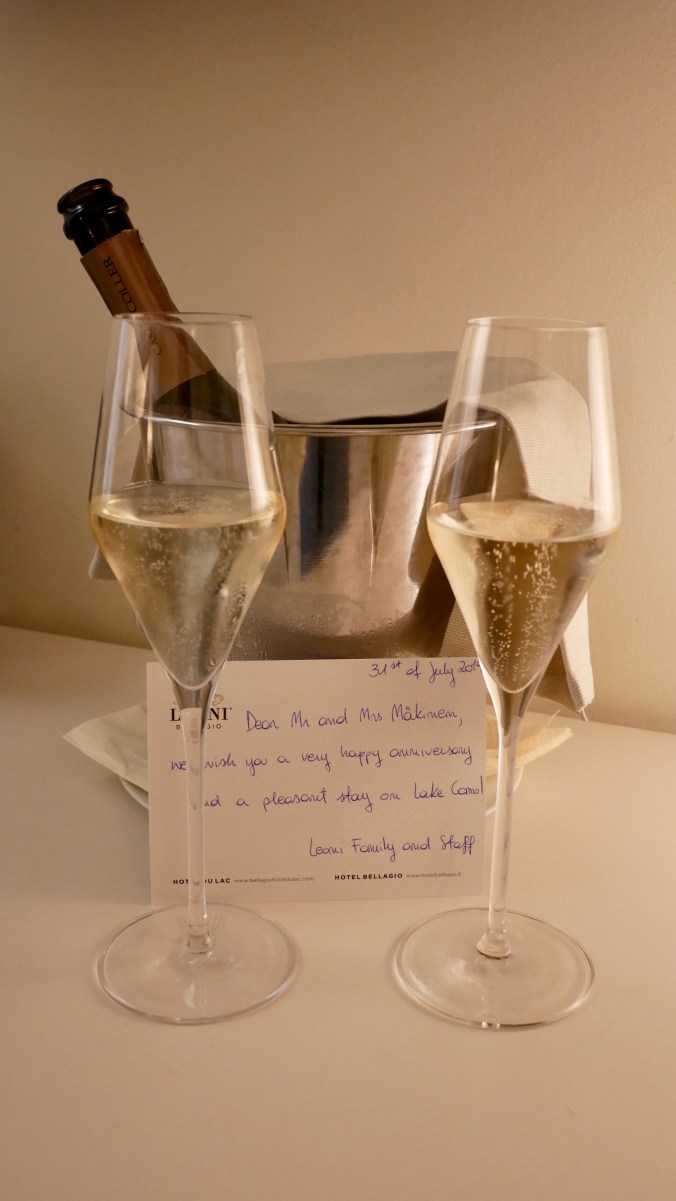 COLLER
31st of July
LEONI
BELLAGIO
Dear Mr and Mrs Mäkinen,
we wish you a very happy anniversary
and a pleasant stay on Lake Como!
Leoni Family and Staff
HOTEL DU LAC www.bellagiohoteldulac.com HOTEL BELLAGIO www.hotelbellagio.it